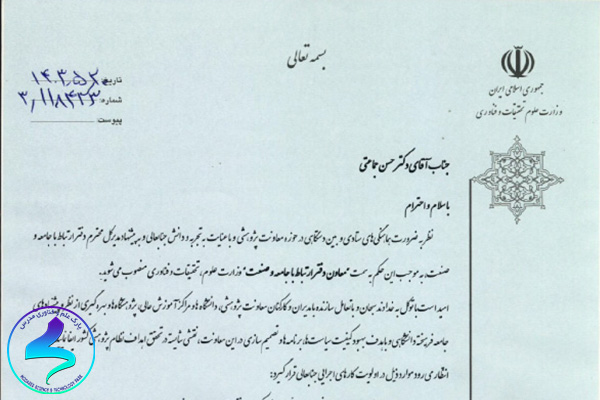 بسمه تعالی
جمهوری اسلامی ایران
وزارت علوم تحقیقات و فناوری
تاریخ:
شماره: ۳/۱۱۸۴۳۳
پیوست
جناب آقای دکتر حسن جماعتی
با سلام و احترام
نظر به ضرورت هماهنگی‌های ستادی و بین دستگاهی در حوزه معاونت پژوهشی و با عنایت به تجربه و دانش جنابعالی و به پیشنهاد مدیرکل محترم دفتر ارتباط با جامعه و
صنعت، به موجب این حکم به سمت "معاون دفتر ارتباط با جامعه و صنعت" وزارت علوم، تحقیقات و فناوری منصوب می‌شوید.
امید است با توکل به خداوند سبحان و با تعامل سازنده با مدیران و کارکنان معاونت پژوهشی، دانشگاه‌ها و مراکز آموزش عالی، پژوهشگاه‌ها و بهره‌گیری از نظر
جامعه فرهیخته دانشگاهی و با هدف بهبود کیفیت سیاست‌ها، برنامه‌ها و تصمیم سازی در این معاونت، نقشی شایسته در تحقق اهداف نظام پژوهشی کشور ایفا نمایید.
انتظار می‌رود موارد ذیل در اولویت کارهای اجرایی جنابعالی قرار گیرد:
پارک علم و فناوری مدرس
MODARES SCIENCE & TECHNOLOGY PARK